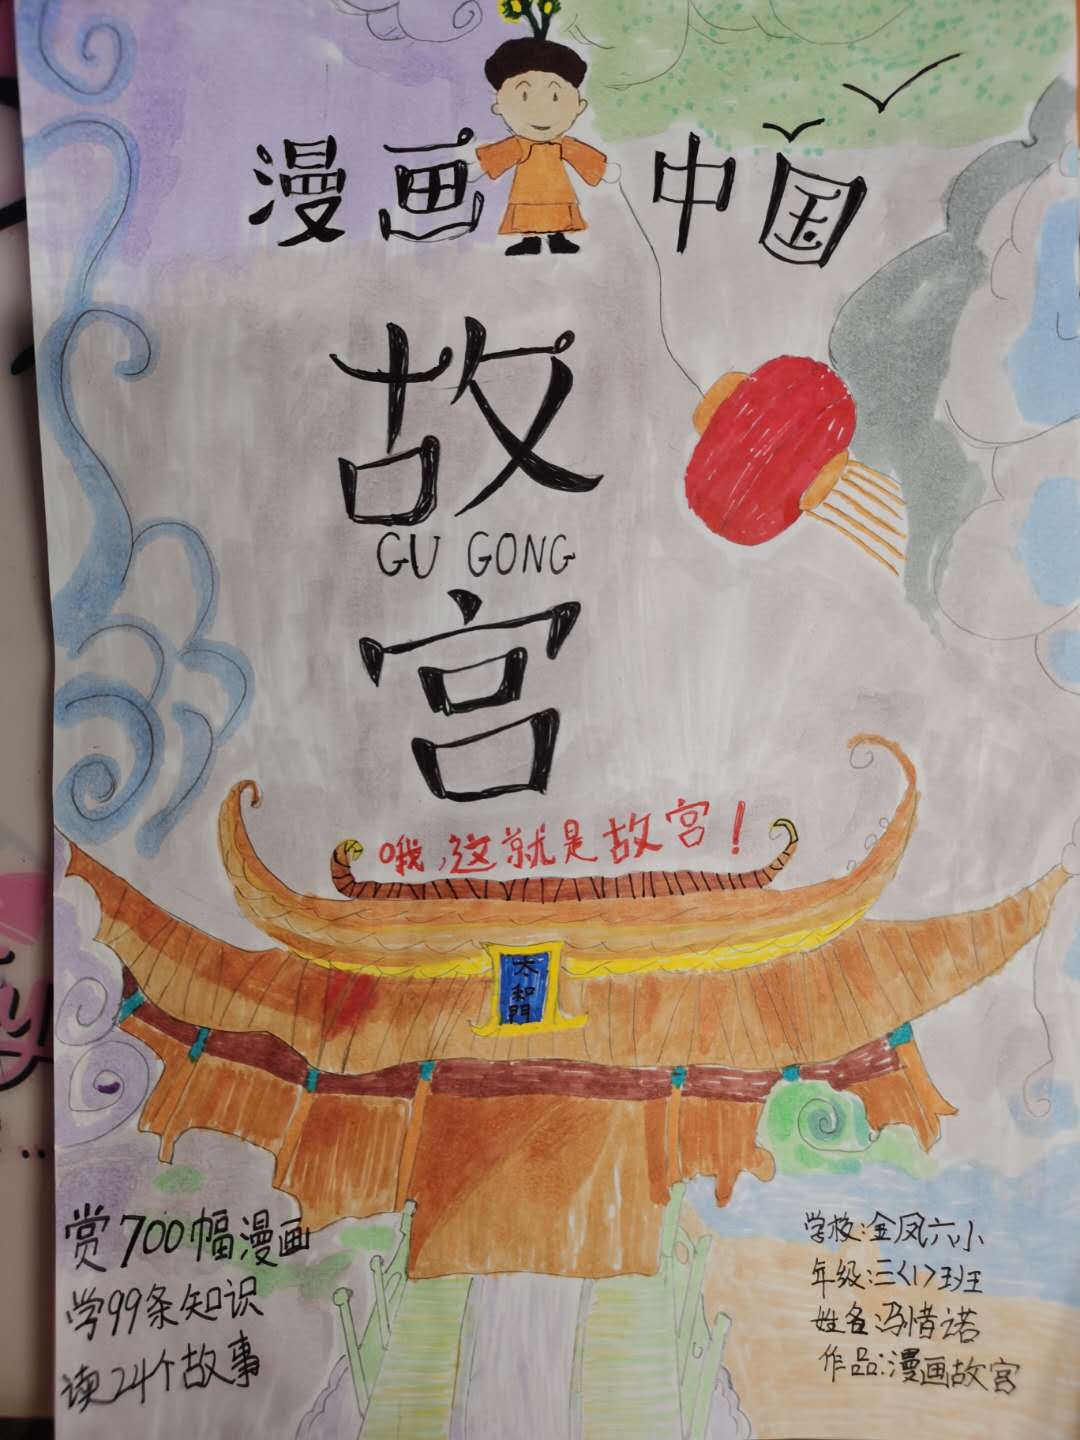 漫画中国
故
GU GONG
宫
哦,这就是故宫!
太和門
赏700幅漫画
学99条知识
读24个故事
学校:金凤六小
年级:三<1>班
姓名:冯惜诺
作品:漫画故宫